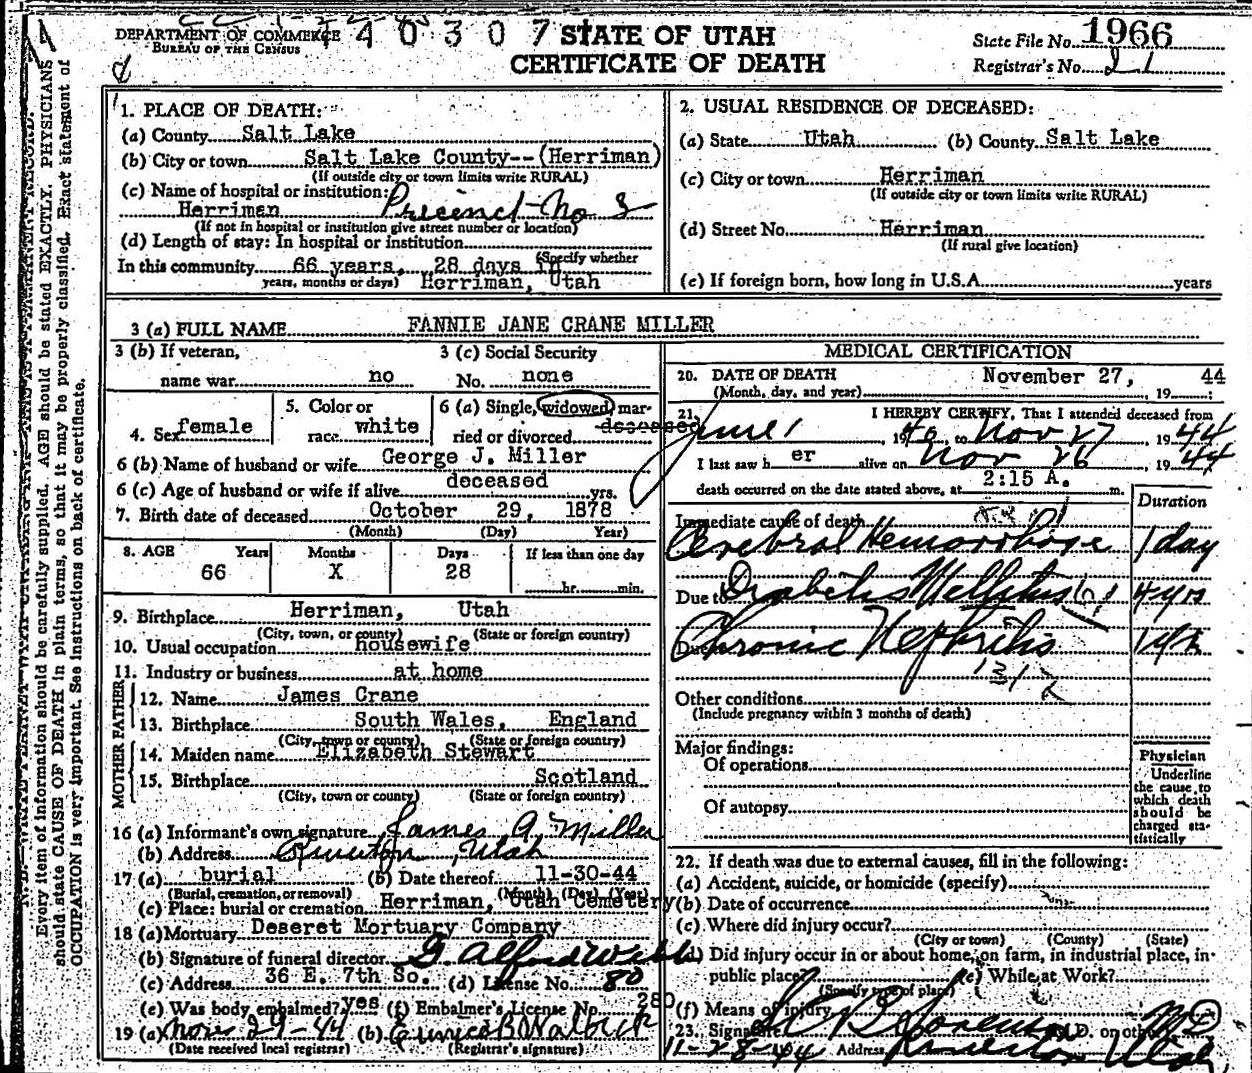 DEPARTMENT OF COMMERCE
BUREAU OF THE CENSUS
4 4 0 3 0 7
STATE OF UTAH
CERTIFICATE OF DEATH
State File No. 1966
Registrar's No. 21
Every item of information should be carefully supplied. AGE should be stated EXACTLY. PHYSICIANS
should state CAUSE OF DEATH in plain terms, so that it may be properly classified. Exact statement of
OCCUPATION is very important. See instructions on back of certificate.
1. PLACE OF DEATH:
(a) County Salt Lake
(b) City or town Salt Lake County--(Herriman)
(If outside city or town limits write RURAL)
(c) Name of hospital or institution:
Herriman Precinct No 3
(If not in hospital or institution give street number or location)
(d) Length of stay: In hospital or institution
(Specify whether
In this community 66 years, 28 days in
years, months or days) Herriman, Utah
2. USUAL RESIDENCE OF DECEASED:
(a) State Utah (b) County Salt Lake
(c) City or town Herriman
(If outside city or town limits write RURAL)
(d) Street No. Herriman
(If rural give location)
(e) If foreign born, how long in U.S.A. years
3 (a) FULL NAME FANNIE JANE CRANE MILLER
3 (b) If veteran, 3 (c) Social Security
name war no No. none
4. Sex female 5. Color or race white 6 (a) Single, widowed, mar-
ried or divorced deceased
6 (b) Name of husband or wife George J. Miller
6 (c) Age of husband or wife if alive deceased yrs.
7. Birth date of deceased October 29, 1878
(Month) (Day) Year)
8. AGE Years Months Days If less than one day
66 X 28 hr. min.
9. Birthplace Herriman, Utah
(City, town, or county) (State or foreign country)
10. Usual occupation housewife
11. Industry or business at home
FATHER
12. Name James Crane
13. Birthplace South Wales, England
(City, town or county) (State or foreign country)
MOTHER
14. Maiden name Elizabeth Stewart
15. Birthplace Scotland
(City, town or county) (State or foreign country)
16 (a) Informant's own signature James A. Miller
(b) Address Riverton, Utah
17 (a) burial (b) Date thereof 11-30-44
(Burial, cremation, or removal) (Month) (Day) (Year)
(c) Place: burial or cremation Herriman, Utah Cemetery
18 (a) Mortuary Deseret Mortuary Company
(b) Signature of funeral director
(c) Address 36 E. 7th So. (d) License No. 80
(e) Was body embalmed? yes (f) Embalmer's License No. 280
19 (a) Nov 29-44 (b)
(Date received local registrar) (Registrar's signature)
MEDICAL CERTIFICATION
20. DATE OF DEATH November 27, 19 44
(Month, day, and year)
21. I HEREBY CERTIFY, That I attended deceased from
June 1, 1940, to Nov 27 1944
I last saw h er alive on Nov 26 1944
death occurred on the date stated above, at 2:15 A. m.
Duration
Immediate cause of death
Cerebral Hemorrhage 1 day
Due to Diabetes Mellitus 4 yrs
Due to Chronic Nephritis
Other conditions
(Include pregnancy within 3 months of death)
Major findings:
Of operations
Of autopsy
Physician
Underline
the cause to
which death
should be
charged sta-
tistically
22. If death was due to external causes, fill in the following:
(a) Accident, suicide, or homicide (specify)
(b) Date of occurrence
(c) Where did injury occur?
(City or town) (County) (State)
(d) Did injury occur in or about home, on farm, in industrial place, in
public place? (e) While at Work?
(Specify type of place)
(f) Means of injury
23. Signature M.D. or other MD
11-28-44 Address Riverton Utah